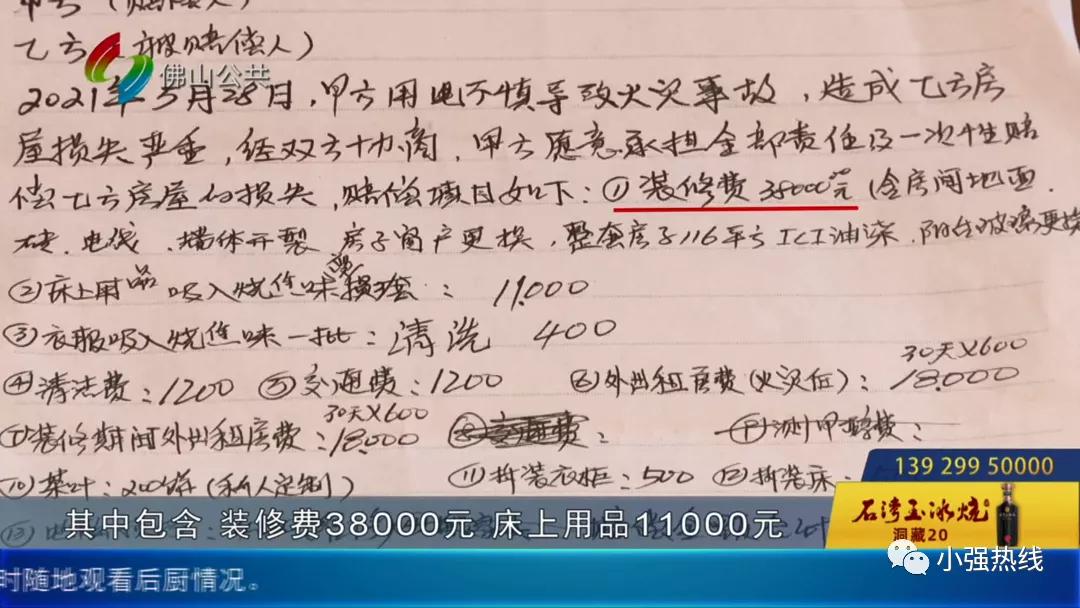 乙方（被赔偿人）
佛山公共
2021年3月28日，甲方用电不慎导致火灾事故，造成乙方房
屋损失严重，经双方协商，甲方愿意承担全部责任及一次性赔
偿乙方房屋的损失，赔偿项目如下：①装修费38000元（含房间地面.
砖.电线.墙体开裂 房子窗户更换，整套房子116平方ICI油漆.阳台玻璃更换
②床上用品 吸入烧焦味 ： 11.000
③衣服吸入烧焦味一批：清洗 400
30天×600
④清洁费：1200 ⑤交通费：1200 ⑥外出租房费（火灾后）：18.000
30天×600
⑦装修期间外出租房费：18.000
⑩茶叶：200饼（私人定制） ⑪拆装衣柜：500 ⑫拆装床：
139 299 50000
石湾玉冰烧
洞藏20
其中包含 装修费38000元 床上用品11000元
小强热线
时随地观看后厨情况。